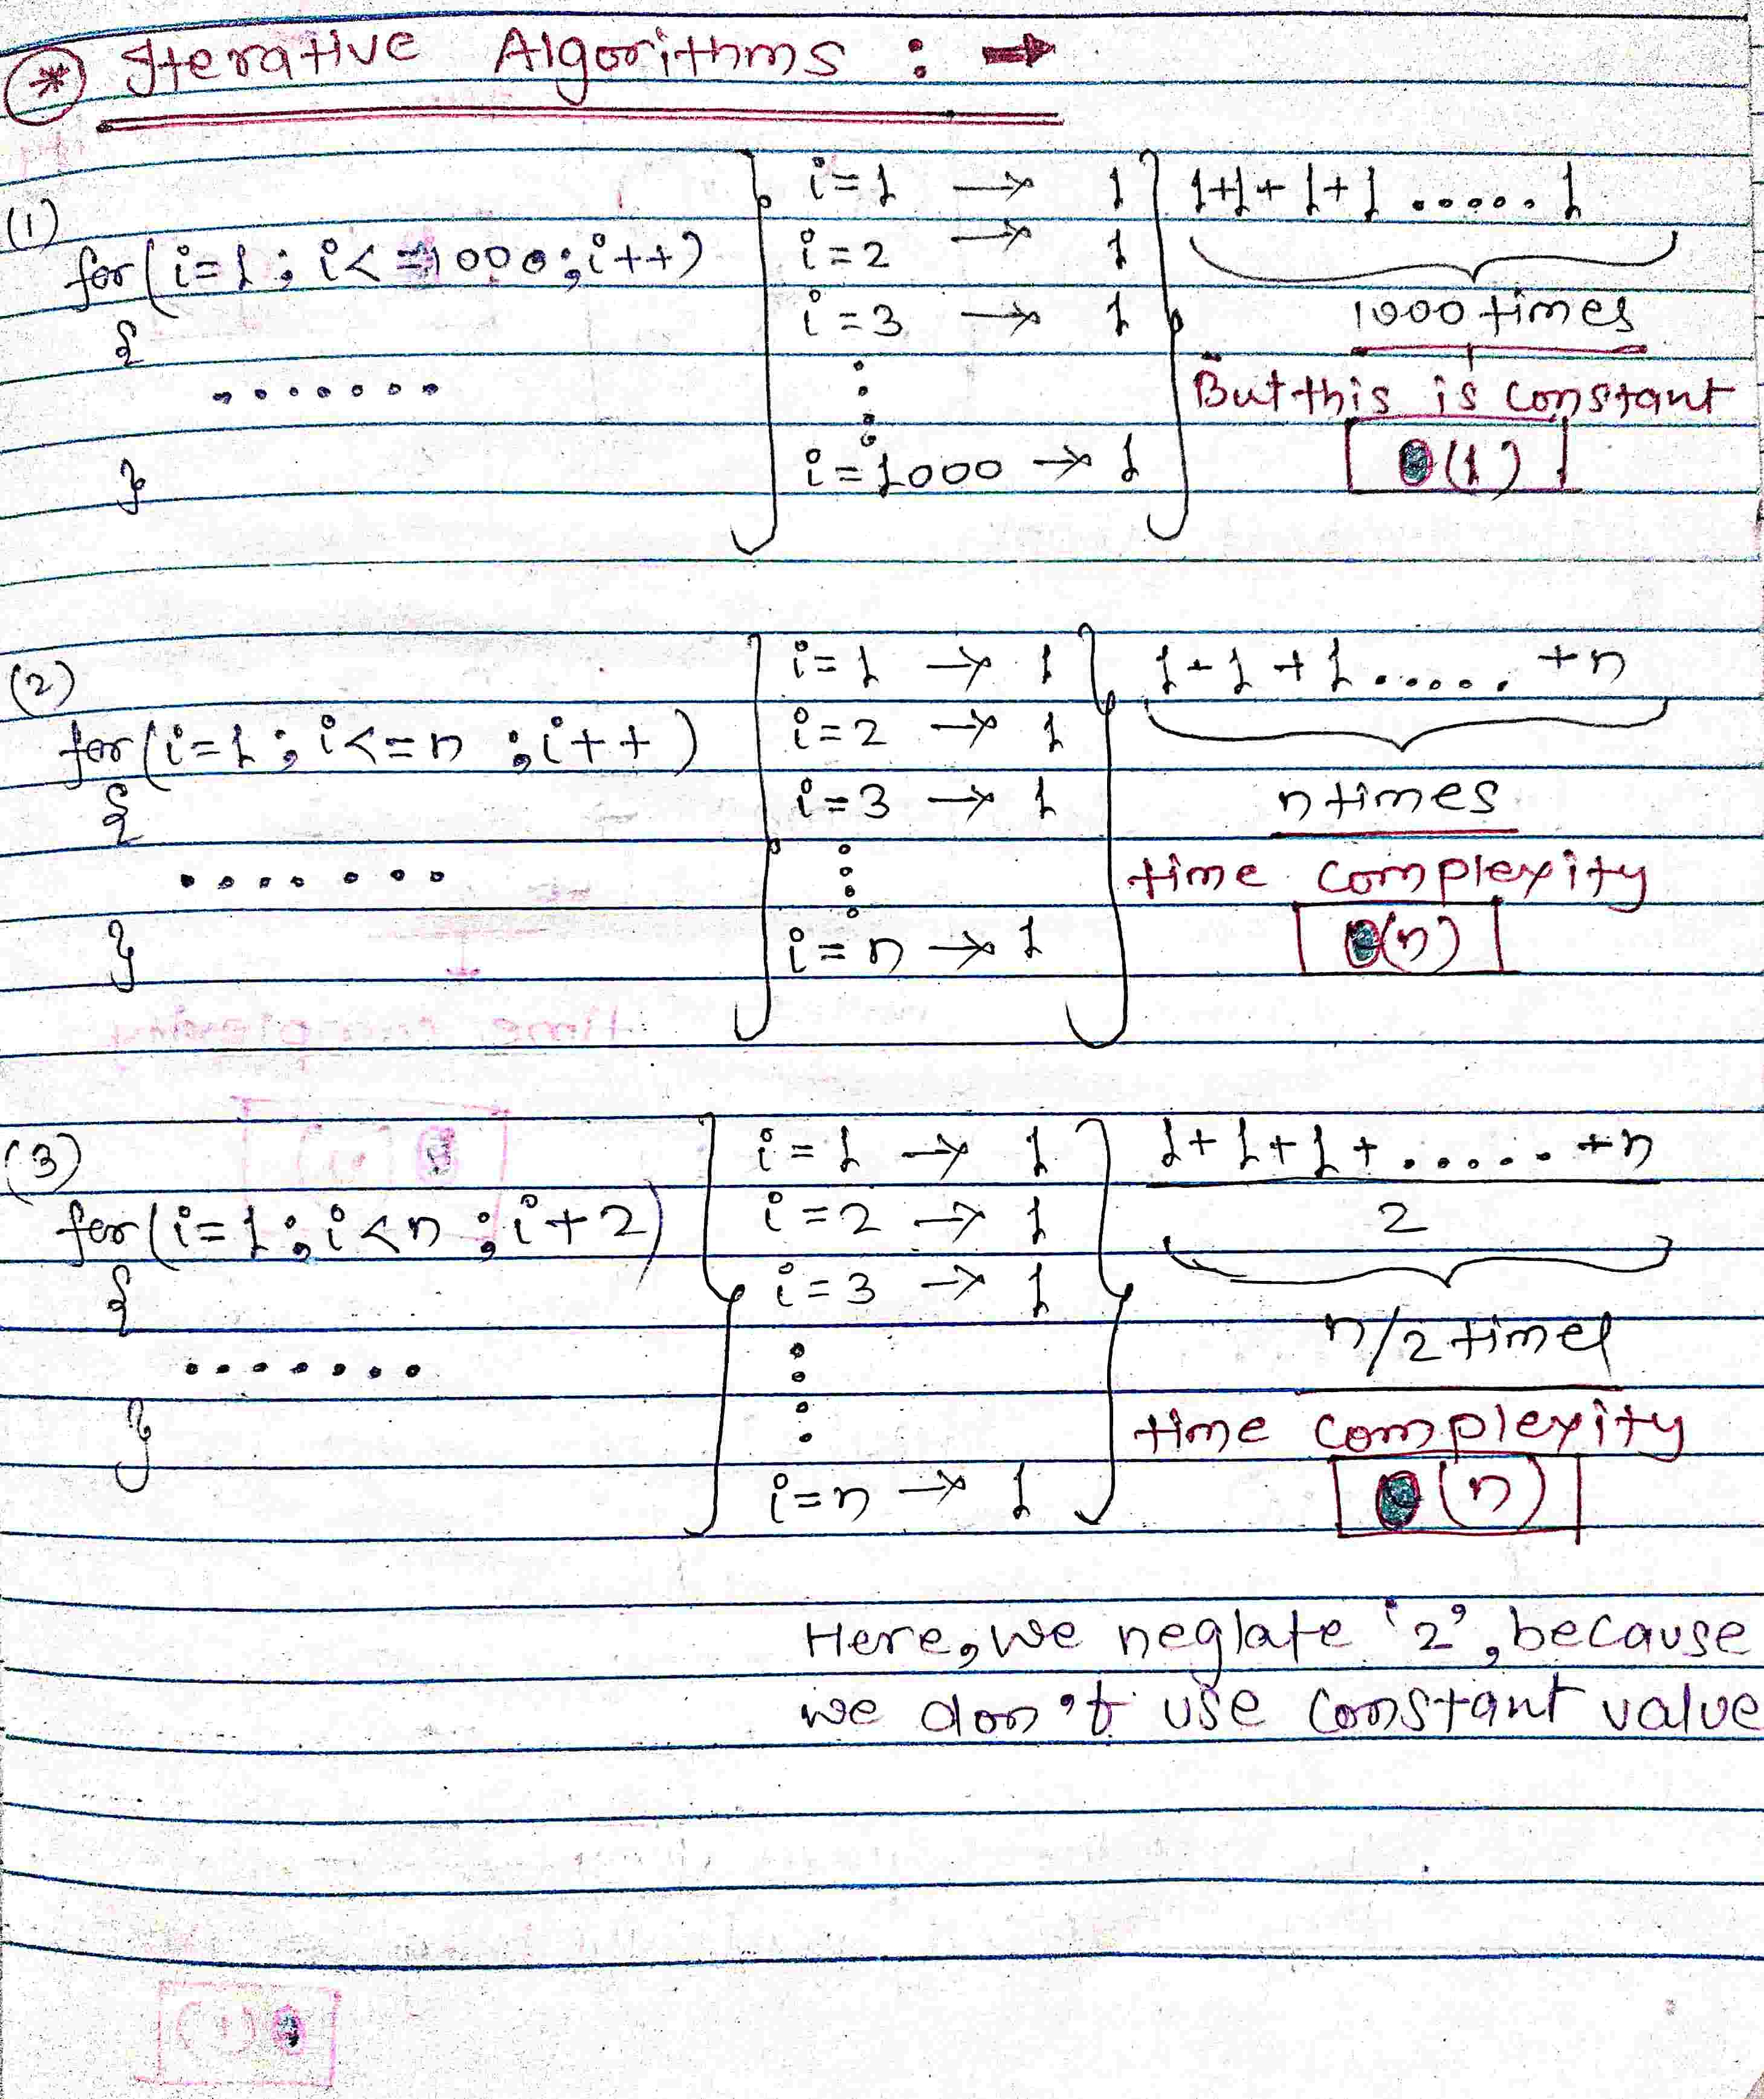 * Iterative Algorithms : →
(1)
for(i=1; i<=1000; i++)
{
.......
}
i=1 → 1
i=2 → 1
i=3 → 1
i=1000 → 1
1+1+1+1.....1
1000 times
But this is constant
θ(1)
(2)
for(i=1; i<=n ; i++)
{
.......
}
i=1 → 1
i=2 → 1
i=3 → 1
i=n → 1
1+1+1..... +n
n times
time complexity
θ(n)
(3)
for(i=1; i<n ; i+2)
{
.......
}
i=1 → 1
i=2 → 1
i=3 → 1
i=n → 1
1+1+1+..... +n
2
n/2 times
time complexity
θ(n)
Here, we neglate '2', because
we don't use constant value